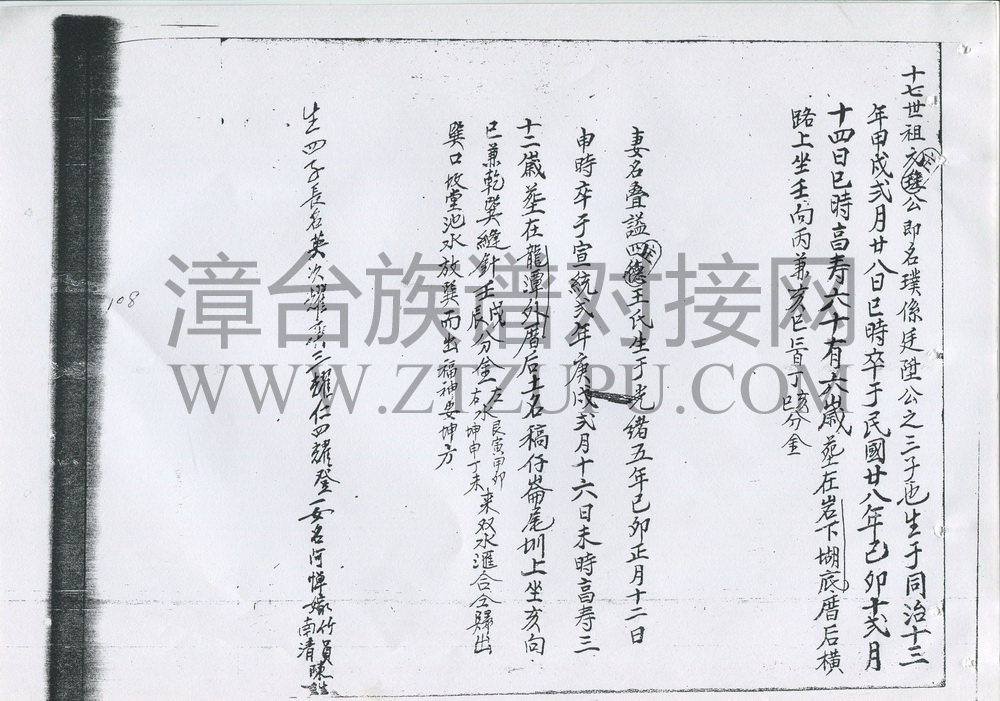 十七世祖文公即名璞係廷陞公之三子也生于同治十三
年甲戌弍月廿八日巳時卒于民國廿八年己卯十弍月
十四日巳時高寿六十有六嵗葬在岩下堋底厝后横
路上坐壬向丙兼亥巳丁亥丁巳分金
妻名叠謚四德王氏生于光緒五年己卯正月十二日
申時卒于宣統弍年庚戌弍月十六日未時高寿三
十二嵗葬在龍潭外厝后土名稿仔崙尾圳上坐亥向
巳兼乾巽縫針壬戌壬辰分金左水艮寅甲卯右水坤申丁未来双水滙合仝歸出
巽口故堂池水放巽而出福神安坤方
生四子長名英次耀三耀仁四耀登一女名阿惮嫁南清竹員陳
108
漳台族谱对接网
WWW.ZTZUPU.COM